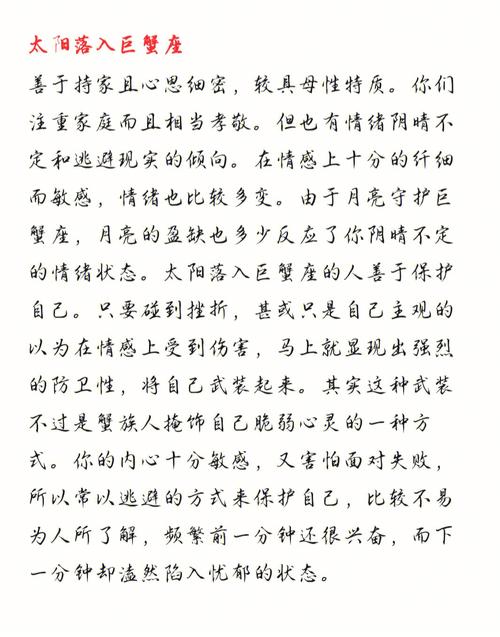 太阳落入巨蟹座
善于持家且心思细密，较具母性特质。你们
注重家庭而且相当孝敬。但也有情绪阴晴不
定和逃避现实的倾向。在情感上十分的纤细
而敏感，情绪也比较多变。由于月亮守护巨
蟹座，月亮的盈缺也多少反应了你阴晴不定
的情绪状态。太阳落入巨蟹座的人善于保护
自己。只要碰到挫折，甚或只是自己主观的
以为在情感上受到伤害，马上就显现出强烈
的防卫性，将自己武装起来。其实这种武装
不过是蟹族人掩饰自己脆弱心灵的一种方
式。你的内心十分敏感，又害怕面对失败，
所以常以逃避的方式来保护自己，比较不易
为人所了解，频繁前一分钟还很兴奋，而下
一分钟却溘然陷入忧郁的状态。